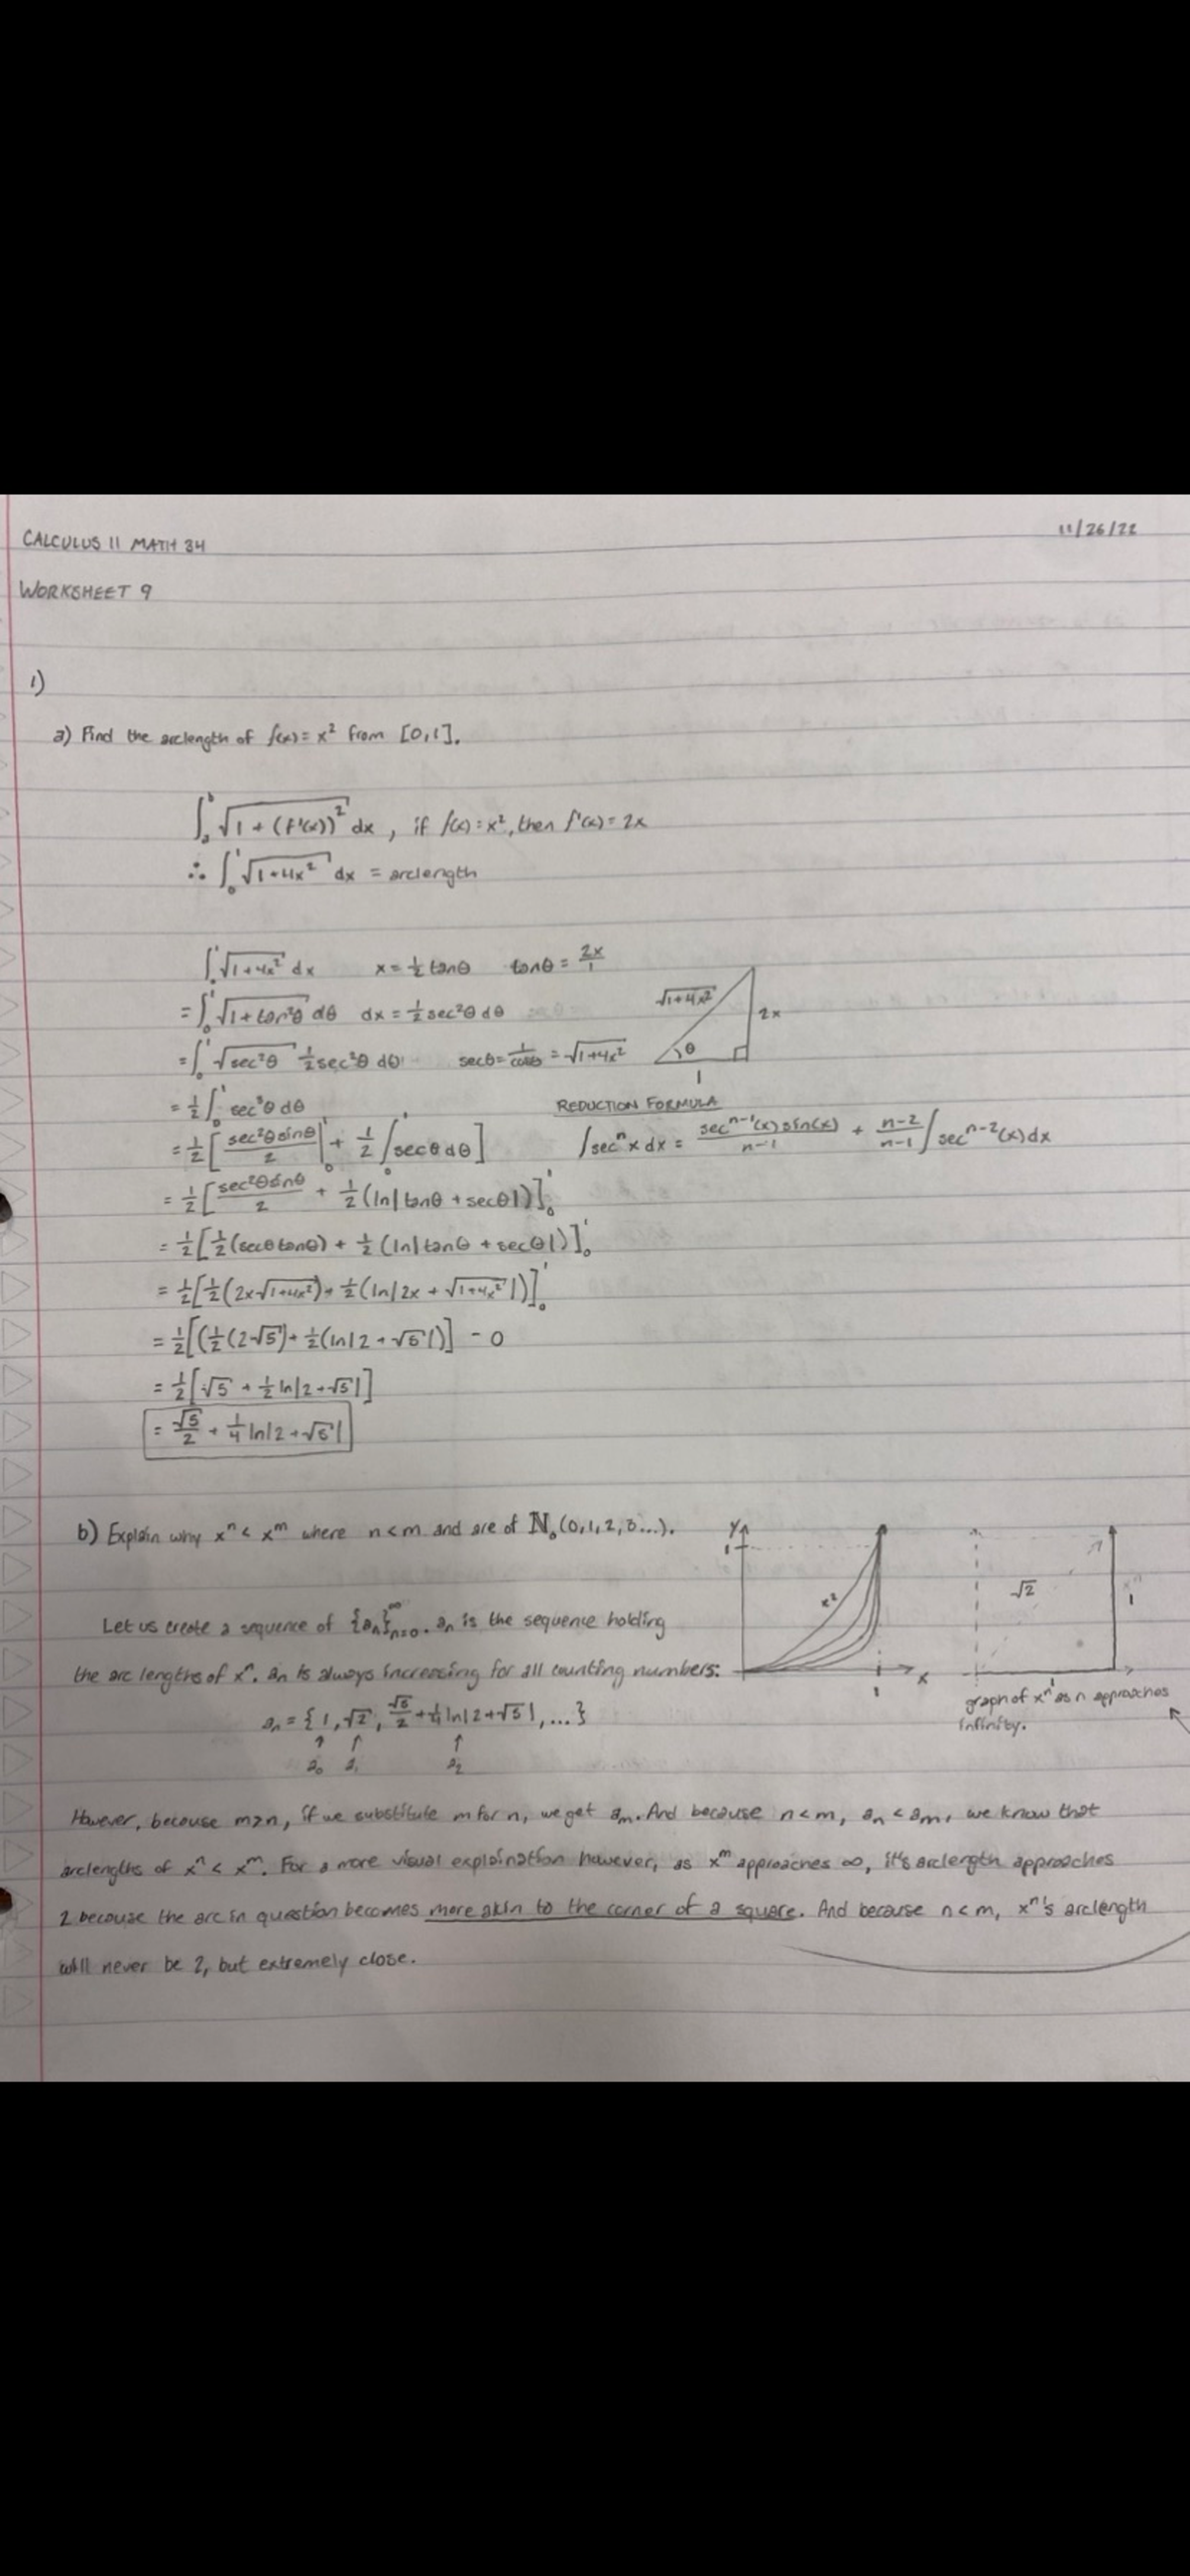 CALCULUS II MATH 34
11/26/22
WORKSHEET 9
1)
a) Find the arclength of f(x) = x² from [0,1].
∫ₐᵇ √(1 + (f'(x))²) dx , if f(x) = x², then f'(x) = 2x
∴ ∫₀¹ √(1+4x²) dx = arclength
∫₀¹ √(1+4x²) dx    x = ½ tanθ    tanθ = 2x/1
= ∫₀¹ √(1+tan²θ) dθ    dx = ½ sec²θ dθ
= ∫₀¹ √(sec²θ) ½ sec²θ dθ    secθ = 1/cosθ = √(1+4x²)
√(1+4x²)
2x
θ
1
= ½ ∫₀¹ sec³θ dθ
REDUCTION FORMULA
= ½ [ sec²θ sinθ/2 |₀¹ + ½ ∫₀¹ secθ dθ ]
∫ secⁿx dx = secⁿ⁻¹(x) sin(x)/n-1 + n-2/n-1 ∫ secⁿ⁻²(x) dx
= ½ [ sec²θ sinθ/2 + ½ (ln|tanθ + secθ|) ]₀¹
= ½ [ ½ (secθ tanθ) + ½ (ln|tanθ + secθ|) ]₀¹
= ½ [ ½ (2x√(1+4x²)) + ½ (ln|2x + √(1+4x²)|) ]₀¹
= ½ [ (½ (2√5) + ½ (ln|2 + √5|) ] - 0
= ½ [ √5 + ½ ln|2+√5| ]
= √5/2 + ¼ ln|2+√5|
b) Explain why xⁿ < xᵐ where n<m and are of ℕ₀ (0,1,2,3...).
Let us create a sequence of {aₙ}ₙ₌₀^∞. aₙ is the sequence holding
the arc lengths of xⁿ. aₙ is always increasing for all counting numbers:
aₙ = { 1, √2, √5/2 + ¼ ln|2+√5|, ... }
↑ ↑ ↑
a₀ a₁ a₂
y
1
x²
x
1
√2
1
1
graph of xⁿ as n approaches
infinity.
However, because m>n, if we substitute m for n, we get aₘ. And because n<m, aₙ < aₘ, we know that
arclengths of xⁿ < xᵐ. For a more visual explaination however, as xᵐ approaches ∞, it's arclength approaches
2 because the arc in question becomes more akin to the corner of a square. And because n<m, xⁿ's arclength
will never be 2, but extremely close.